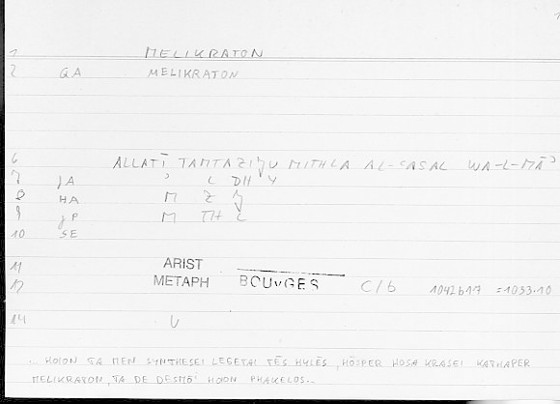 1 MELIKRATON
2 GA MELIKRATON
6 ALLATĪ TAMTAZIǦU MITHLA AL-ʿASAL WA-L-MĀʾ
7 JA ʾ L DH Y
8 HA M Z Ǧ
9 JP M TH L
10 SE
11 ARIST
12 METAPH BOUYGES C/b 1042b17 =1033.10
14 U
.. HOION TA MEN SYNTHESEI LEGETAI TĒS HYLĒS, HŌSPER HOSA KRASEI KATHAPER
MELIKRATON, TA DE DESMŌ' HOION PHAKELOS..